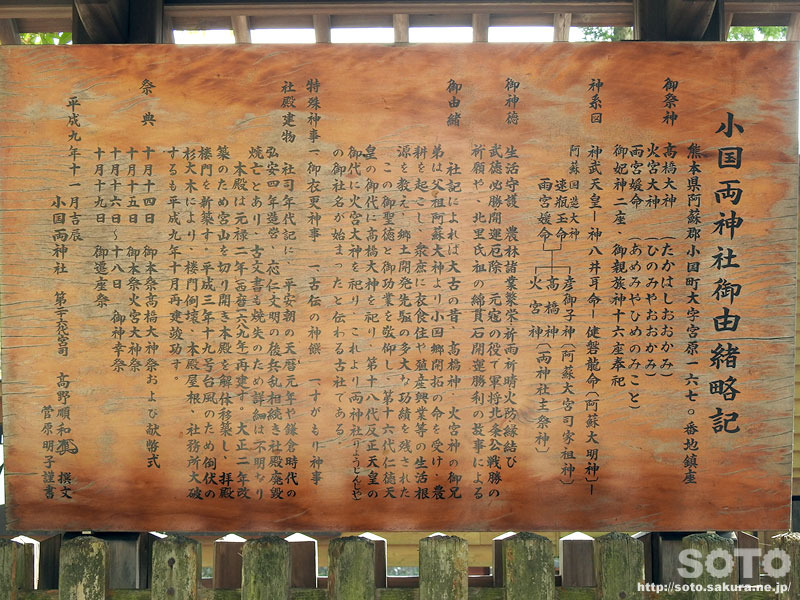 小国両神社御由緒略記
熊本県阿蘇郡小国町大字宮原一六七〇番地鎮座
御祭神
高橋大神 (たかはしおおかみ)
火宮大神 (ひのみやおおかみ)
雨宮媛命 (あめみやひめのみこと)
御妃神二座、御親族神十六座奉祀
神系図
神武天皇ー神八井耳命ー健磐龍命(阿蘇大明神)ー
阿蘇国造大神
速瓶玉命
雨宮媛命
彦御子神(阿蘇大宮司家祖神)
高橋神
火宮神
(両神社主祭神)
御神徳
生活守護、農林諸業繁栄祈雨祈晴火防縁結び
武徳必勝開運厄除、元寇の役で軍将北条公戦勝の
祈願や、北里氏祖の綿貫石開運勝利の故事による
御由緒
社記によれば大古の昔、高橋神、火宮神の御兄
弟は父祖阿蘇大神より小国郷開拓の命を受け、農
耕を起こし、衆庶に衣食住や殖産興業等の生活根
源を教え、郷土開発先駆の多大な功績を残された
この御聖徳と御功業を敬仰し、第十六代仁徳天
皇の御代に高橋大神を祀り、第十八代反正天皇の
御代に火宮大神を祀り、これより両神社(りょうじんしゃ)
の御社名が始まったと伝わる古社である。
特殊神事
一御衣更神事 一古伝の神饌 一すがもり神事
社殿建物
社司年代記に、平安朝の天暦元年や鎌倉時代の
弘安四年造営、応仁文明の後兵乱相続き社殿廃毀
焼亡とあり、古文書も焼失のため詳細は不明なり
本殿は元禄二年(西暦一六八九年)再建す。大正二年改
築のため宮山を切り開き本殿を解体移築し、拝殿
楼門を新築す、平成三年十九号台風のため倒伏の
杉大木により、楼門倒壊、本殿屋根、社務所大破
するも平成九年十月再建竣功す。
祭典
十月十四日 御本祭高橋大神祭および献幣式
十月十五日 御本祭火宮大神祭
十月十六日~十八日 御神幸祭
十月十九日 御還座祭
平成九年十一月吉辰
小国両神社 宮司 高野順和 撰文
菅原明子謹書
SOTO
http://soto.sakura.ne.jp/